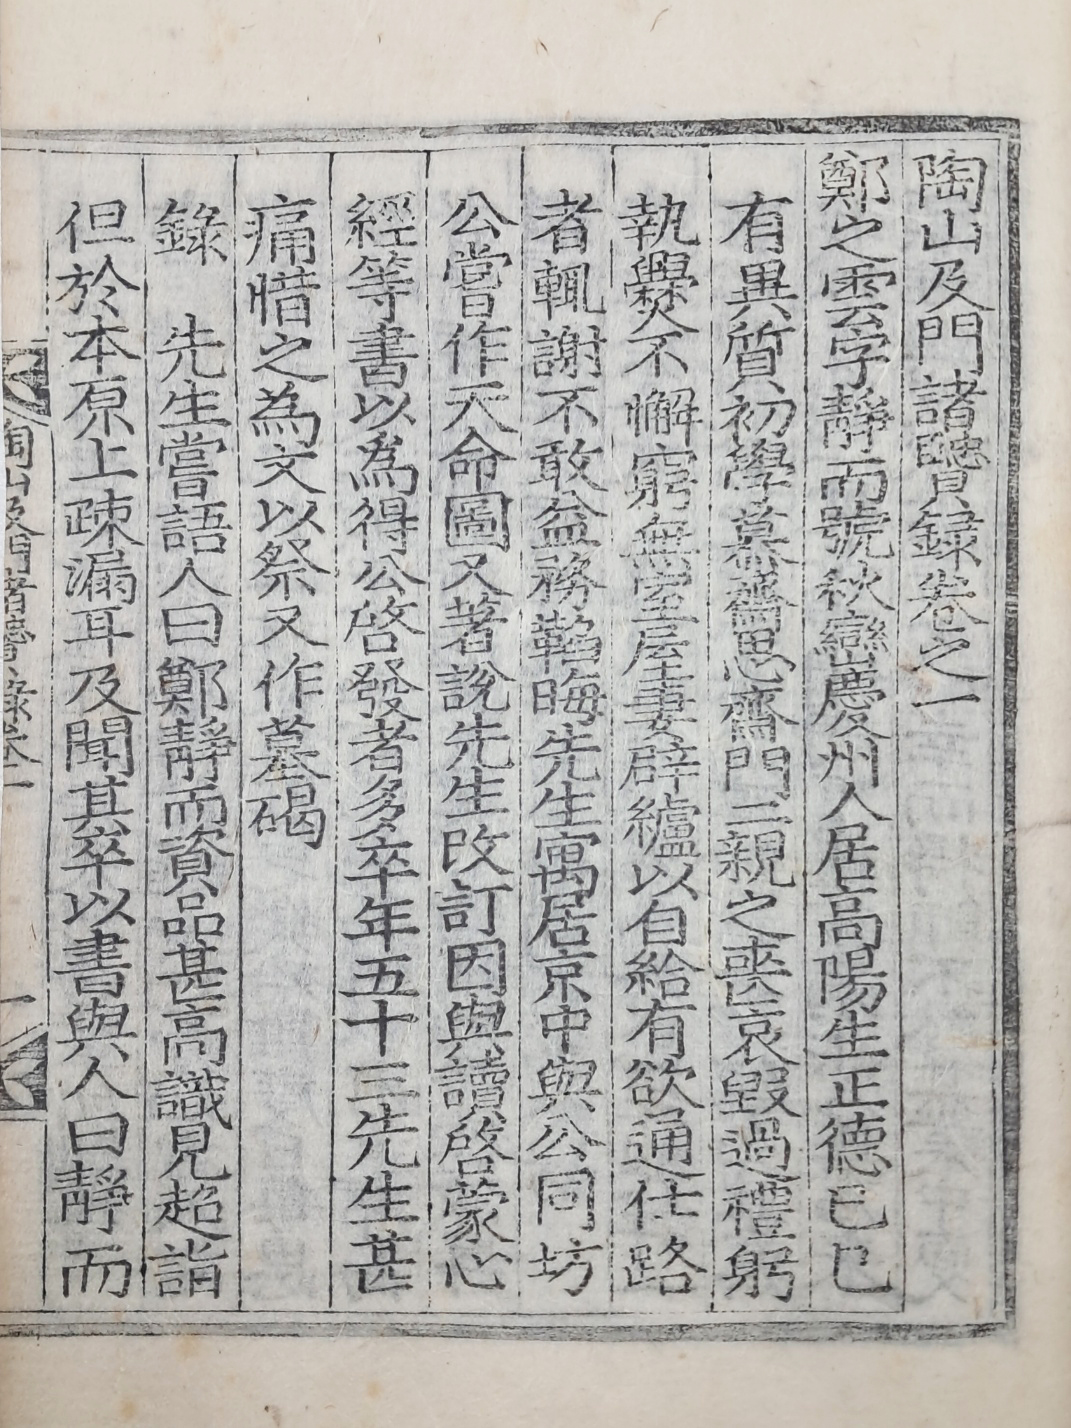 陶山及門諸賢録卷之一
鄭之雲字靜而號秋巒慶州人居高陽生正德己巳
有異質初學慕齋思齋門二親之喪哀毀過禮躬
執爨不懈窮無室屋妻辟纑以自給有欲通仕路
者輒謝不敢益務韜晦先生寓居京中與公同坊
公嘗作天命圖又著說先生改訂因與讀啓蒙心
經等書以爲得公啓發者多卒年五十三先生甚
痛惜之為文以祭又作墓碣
錄　先生嘗語人曰鄭靜而資品甚高識見超詣
但於本原上疎漏耳及聞其卒以書與人曰靜而
陶山及門諸賢錄卷一　一